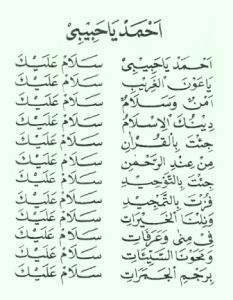 اَحْمَدْ يَاحَبِيْبِيْ
اَحْمَدْ يَاحَبِيْبِيْ سَلَامُ عَلَيْكَ
يَاعَوْنَ الْغَرِيْبِ سَلَامُ عَلَيْكَ
اَمْنٌ وَسَلَامٌ سَلَامُ عَلَيْكَ
دِيْنُكَ الْاِسْلَامُ سَلَامُ عَلَيْكَ
جِئْتَ بِالْقُرْاٰنِ سَلَامُ عَلَيْكَ
مِنْ عِنْدِ الرَّحْمٰنِ سَلَامُ عَلَيْكَ
جِئْتَ بِالتَّوْحِيْدِ سَلَامُ عَلَيْكَ
فُزْتَ بِالتَّمْجِيْدِ سَلَامُ عَلَيْكَ
وَنِلْنَا الْخَيْرَاتِ سَلَامُ عَلَيْكَ
فِيْ مِنٰى وَعَرَفَاتِ سَلَامُ عَلَيْكَ
وَمَحَوْنَا السَّيِّئَاتِ سَلَامُ عَلَيْكَ
بِرَجْمِ الْجَمَرَاتِ سَلَامُ عَلَيْكَ